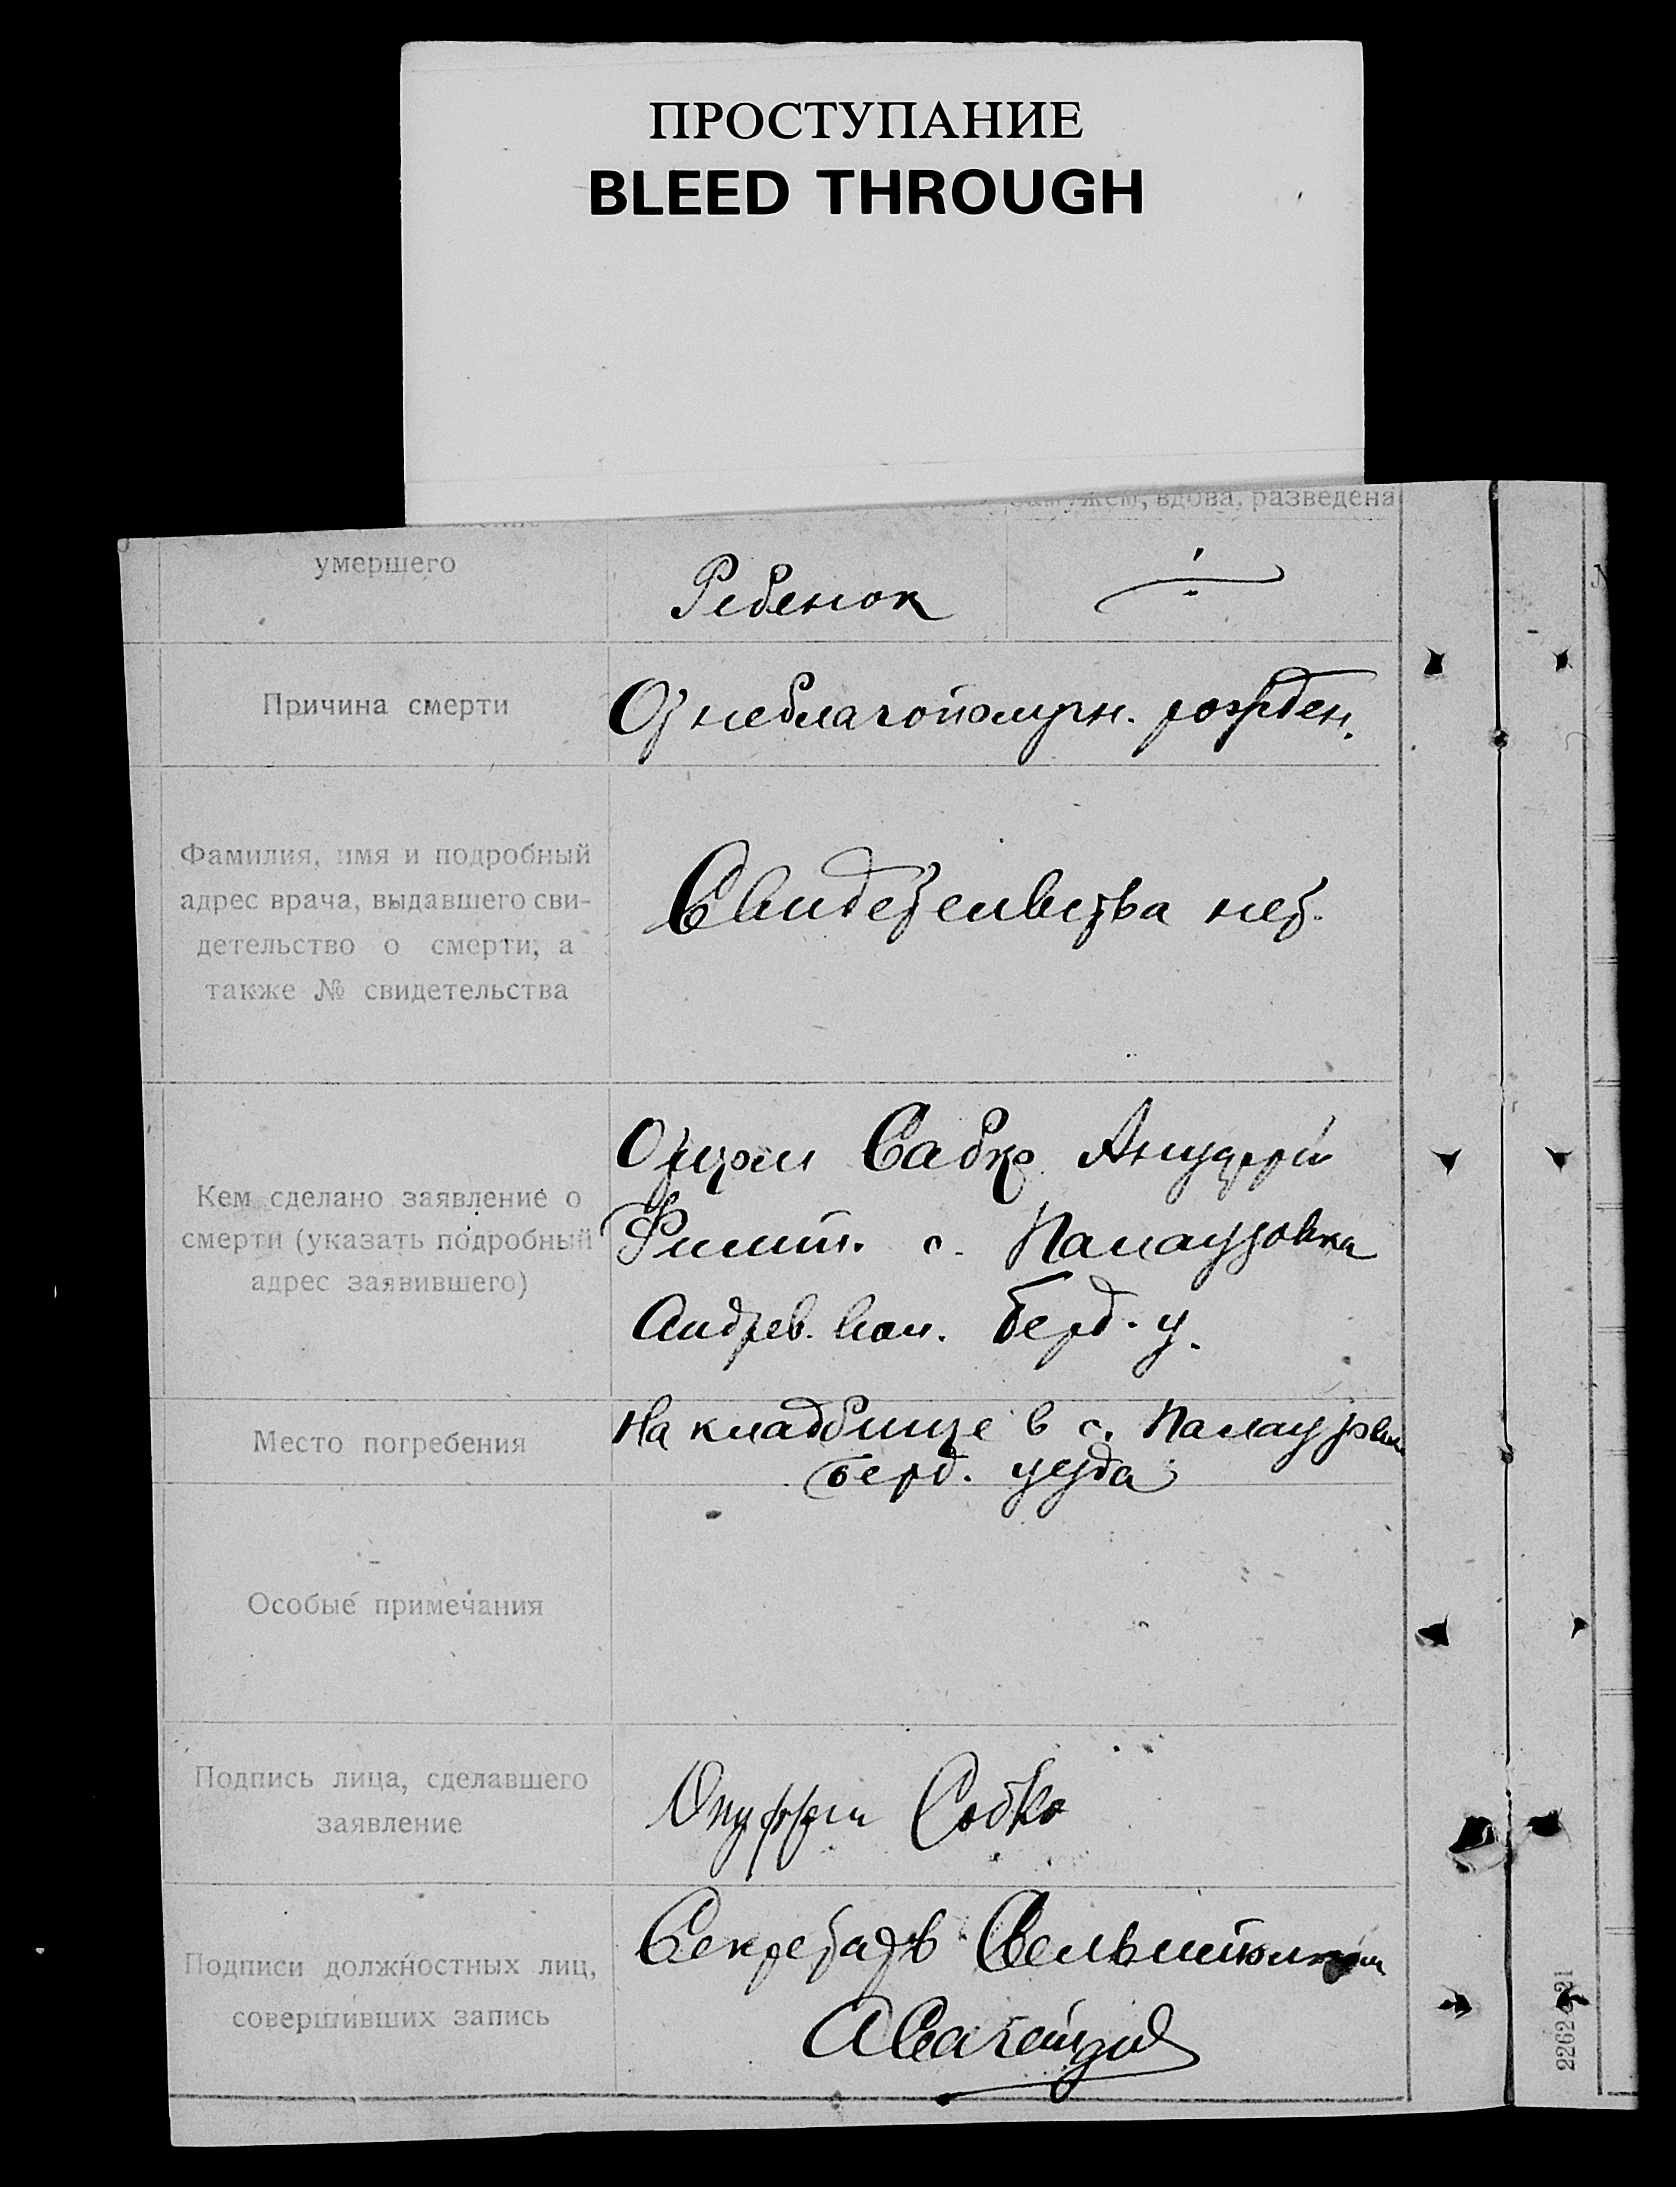 ПРОСТУПАНИЕ
BLEED THROUGH
замужем, вдова, разведена
умершего
Ребенок
Причина смерти
От неблагополучн. рожден.
Фамилия, имя и подробный
адрес врача, выдавшего сви-
детельство о смерти, а
также № свидетельства
Свидетельства нет.
Кем сделано заявление о
смерти (указать подробный
адрес заявившего)
Отцом Сабко
с.
Андреев. вол. Берд. у.
Место погребения
На кладбище в с.
Берд. уезда
Особые примечания
Подпись лица, сделавшего
заявление
Собко
Подписи должностных лиц,
совершивших запись
Секретарь